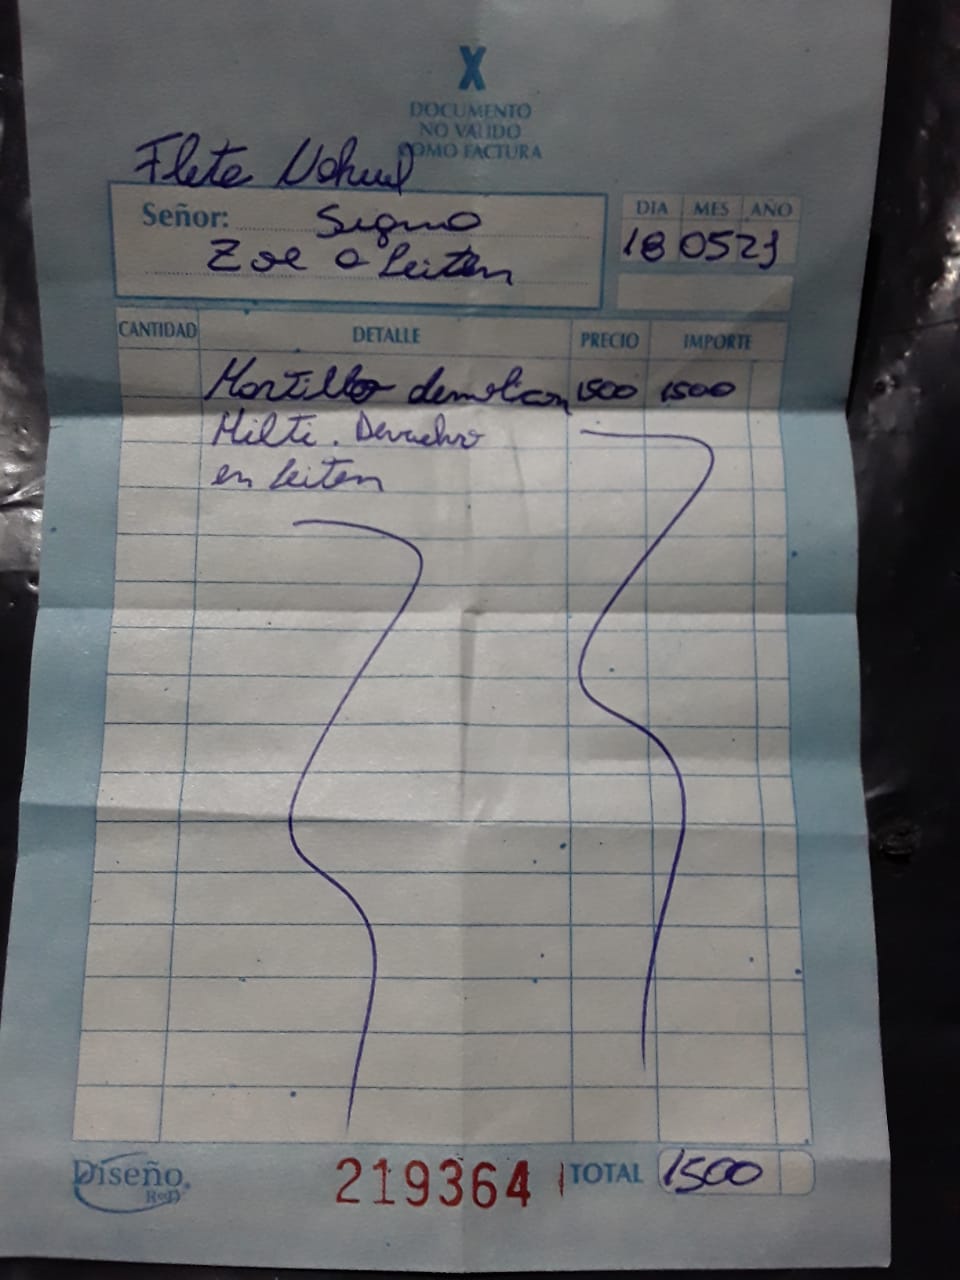 X
DOCUMENTO
NO VALIDO
COMO FACTURA
Flete Nahuel
Señor: Signo
Zoe a Leiten
DIA MES AÑO
18 05 21
CANTIDAD DETALLE PRECIO IMPORTE
Martillo demolicon 1500 1500
Hilti. Devuelvo
en Leiten
Diseño
219364 TOTAL 1500